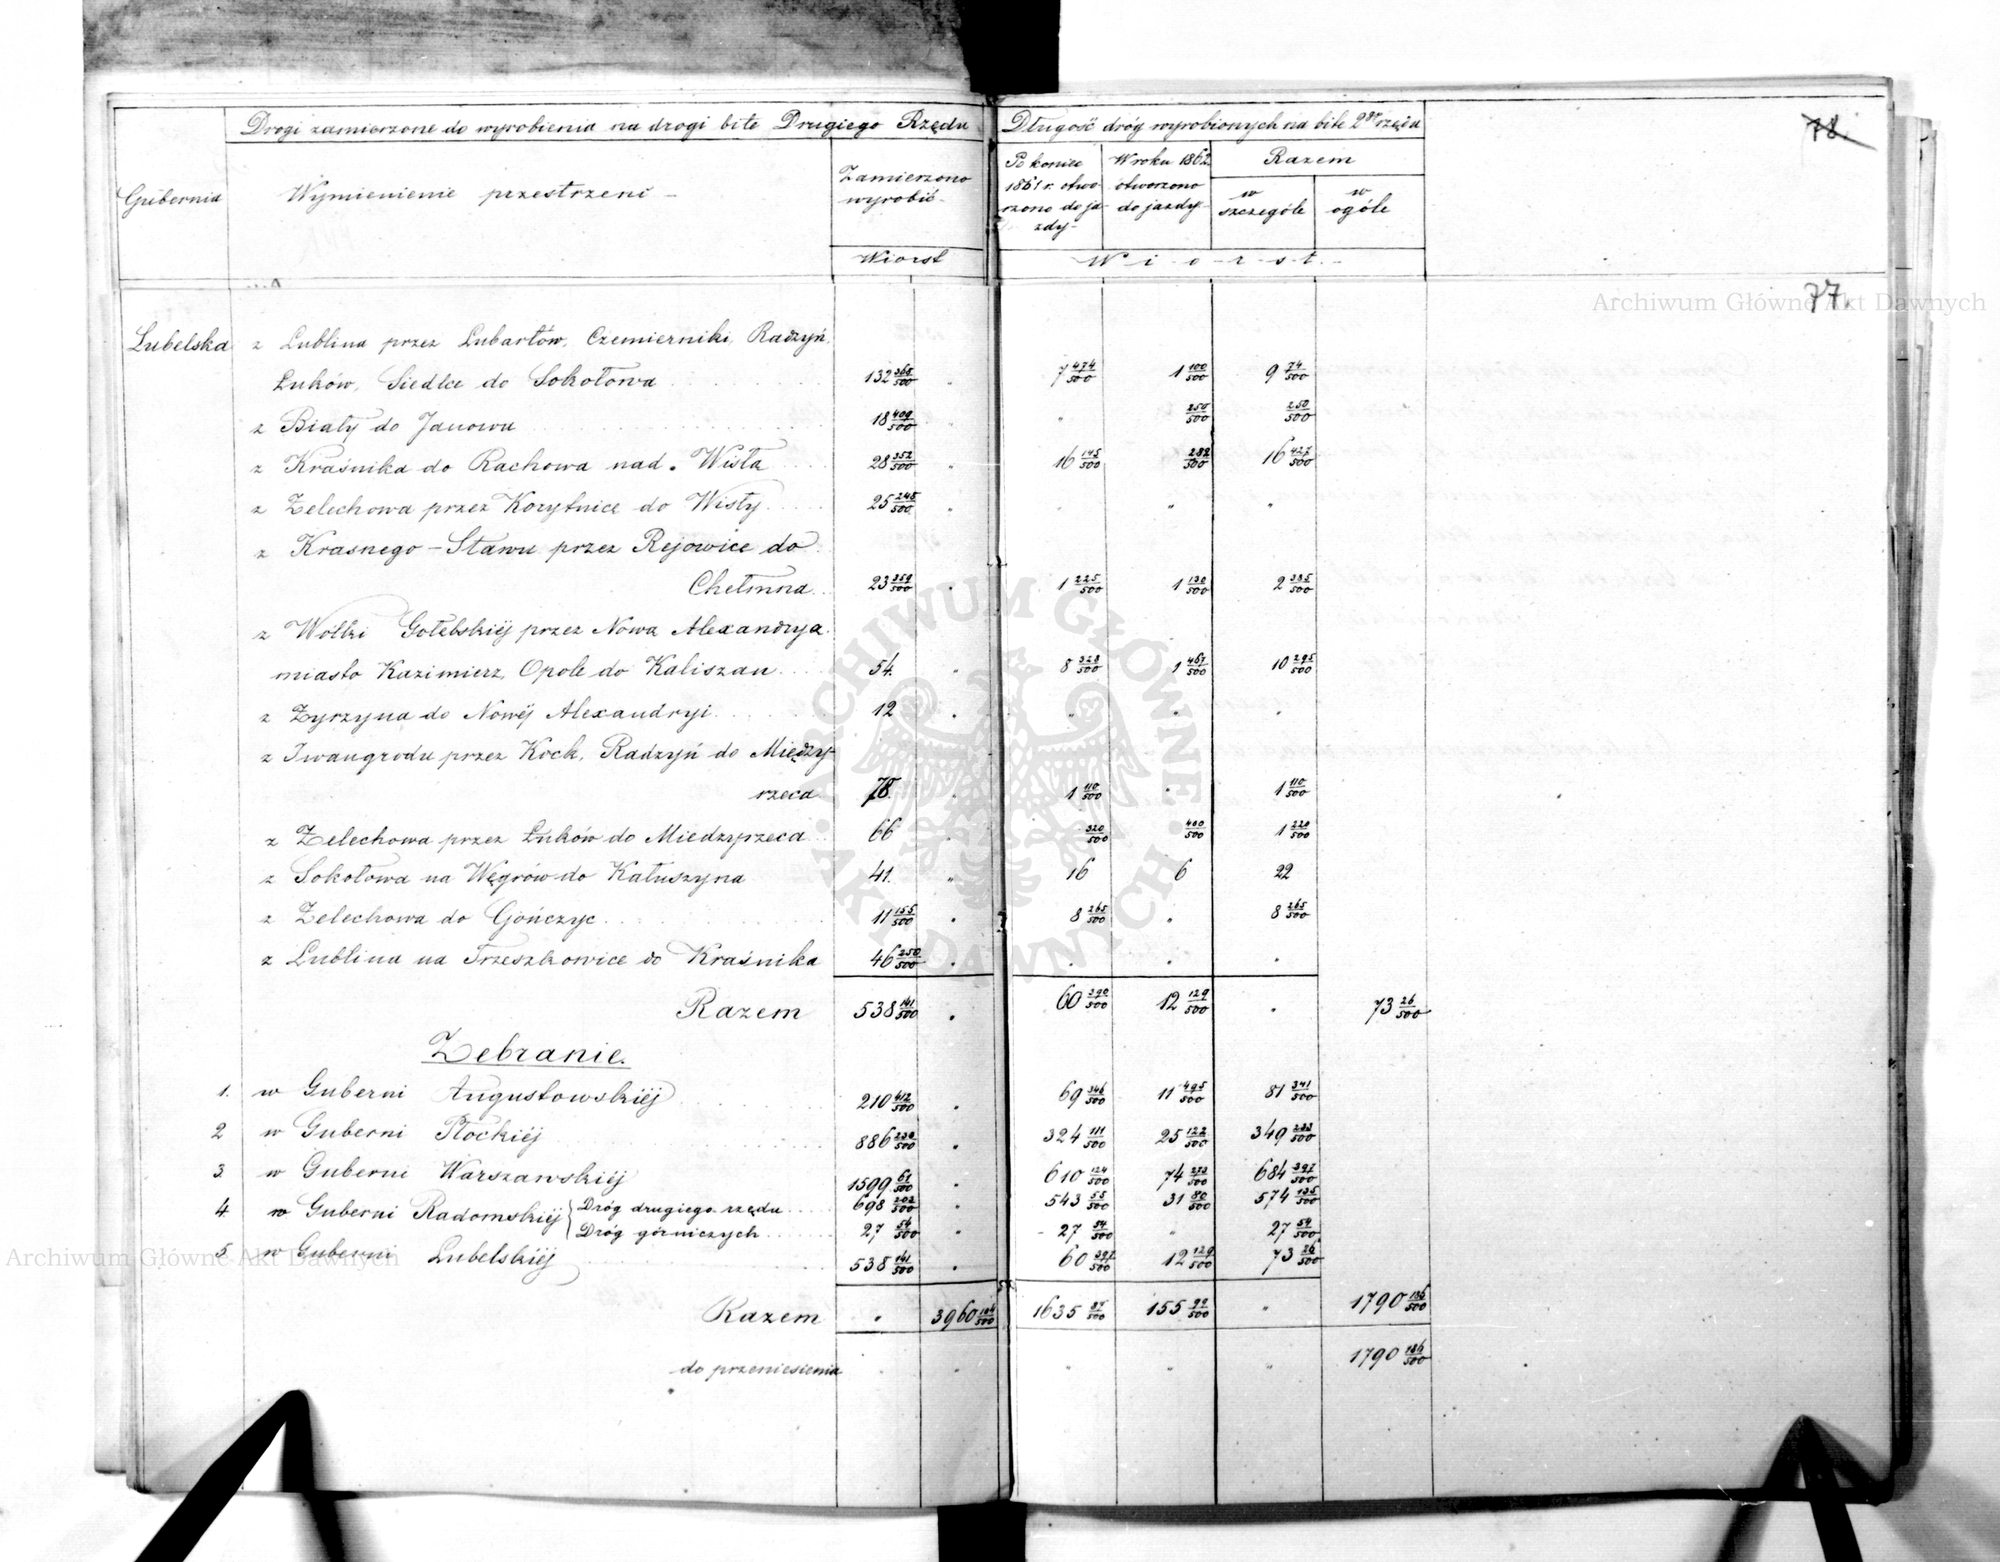 Drogi zamierzone do wyrobienia na drogi bite Drugiego Rzędu
Długość dróg wyrobionych na bite 2go rzędu
78.
Gubernia
Wymienienie przestrzeni
Zamierzono wyrobić
Po koniec 1861 r. otworzono do jazdy
W roku 1862 otworzono do jazdy
Razem
w szczególe
w ogóle
Wiorst
Wiorst
77.
Archiwum Główne Akt Dawnych
Lubelska z Lublina przez Lubartów, Czemierniki, Radzyń,
Łuków, Siedlce do Sokołowa 132 365/500 7 474/500 1 100/500 9 74/500
z Biały do Janowa 18 409/500 " 250/500 250/500
z Kraśnika do Rachowa nad Wisłą 28 352/500 16 145/500 282/500 16 427/500
z Żelechowa przez Korytnicę do Wisły 25 245/500 " "
z Krasnego-Stawu przez Rejowice do
Chełmna 23 359/500 1 225/500 1 130/500 2 385/500
z Wólki Gołebskiéj przez Nową Alexandryą
miasto Kazimierz, Opole do Kaliszan 54. 8 328/500 1 467/500 10 295/500
z Żyrzyna do Nowéj Alexandryi 12 " " "
z Iwangrodu przez Kock, Radzyń do Między-
rzeca 78. 1 110/500 " 1 110/500
z Żelechowa przez Łuków do Miedzyrzeca 66 320/500 400/500 1 220/500
z Sokołowa na Węgrów do Kałuszyna 41. " 16 6 22
z Żelechowa do Gończyc 11 155/500 8 265/500 " 8 265/500
z Lublina na Trzeszkowice do Kraśnika 46 250/500 " " "
Razem 538 141/500 60 390/500 12 129/500 " 73 26/500
Zebranie.
1. w Guberni Augustowskiéj 210 412/500 69 346/500 11 495/500 81 341/500
2 w Guberni Płockiéj 886 238/500 324 111/500 25 122/500 349 233/500
3 w Guberni Warszawskiéj 1599 61/500 610 124/500 74 273/500 684 397/500
4. w Guberni Radomskiéj Dróg drugiego rzędu 698 202/500 543 55/500 31 80/500 574 135/500
Dróg górniczych 27 54/500 27 54/500 " 27 54/500
5 w Guberni Lubelskiéj 538 141/500 60 397/500 12 129/500 73 26/500
Archiwum Główne Akt Dawnych
Razem " 3960 104/500 1635 87/500 155 99/500 " 1790 186/500
do przeniesienia " " " " " 1790 186/500
ARCHIWUM GŁÓWNE AKT DAWNYCH